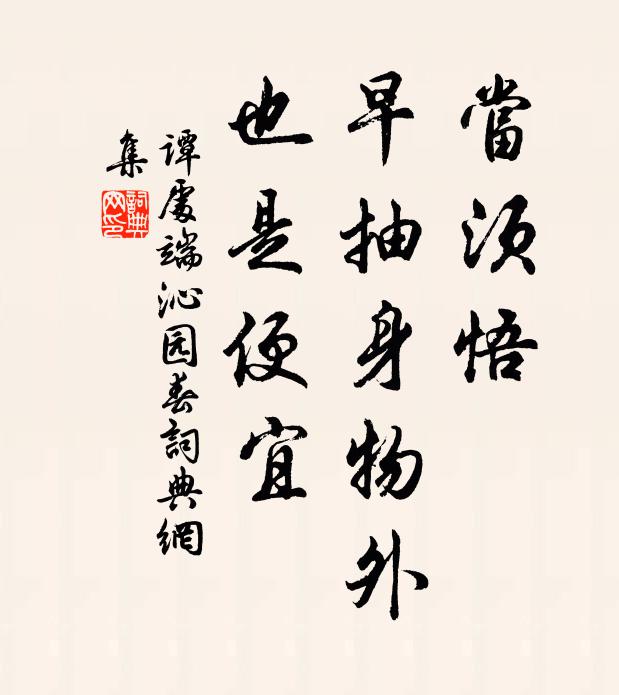 當須悟
早抽身物外
也是便宜
谭處端沁园春詞典網
集
詞典网印